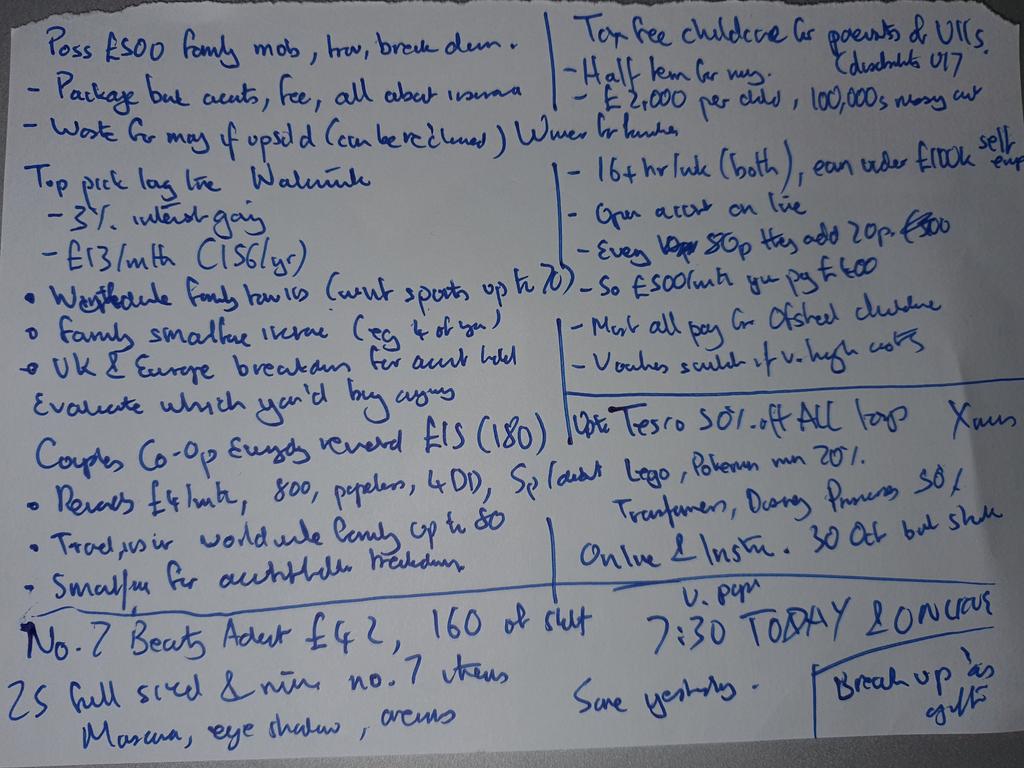 Poss £500 family mob, trav, break down.
- Package bank accnts, fee, all about insurance
- Waste for many if upsold (can be reclaimed) Winner for handfuls
Top pick long live
- 3% interest going
- £13/mth (156/yr)
• Worldwide family travel ins (wint sports up to 70)
• Family smartfone insrnce (eg 4 of you)
• UK & Europe breakdown for accnt hold
Evaluate which you'd buy anyway
Couples Co-Op Everyday reward £15 (180)
• Rewards £4/mth, 800, paperless, 4 DD, 5p/debit
• Travel insur worldwide family up to 80
• Smartfon for accntholder breakdown
Tax free childcare for parents of U11s.
(disabled U17
- Half term for many.
- £2,000 per child, 100,000s missing out
- 16+ hr/wk (both), earn under £100k self emp
- Open accnt on line
- Every 80p they add 20p.
- So £500/mth you pay £400
- Most all pay for Ofsted childcare
- Vouchers if v. high costs
Tesco 50% off ALL toys Xmas
Lego, Pokemon min 20%.
Transformers, Disney Princess 50%
Online & Instr. 30 Oct but
No. 7 Beauty Advent £42, 160 of stuff
25 full sized & mini no. 7 items
Mascara, eye shadow, creams
v. pop
7:30 TODAY & ONLINE
Same yesterday.
Break up as gifts